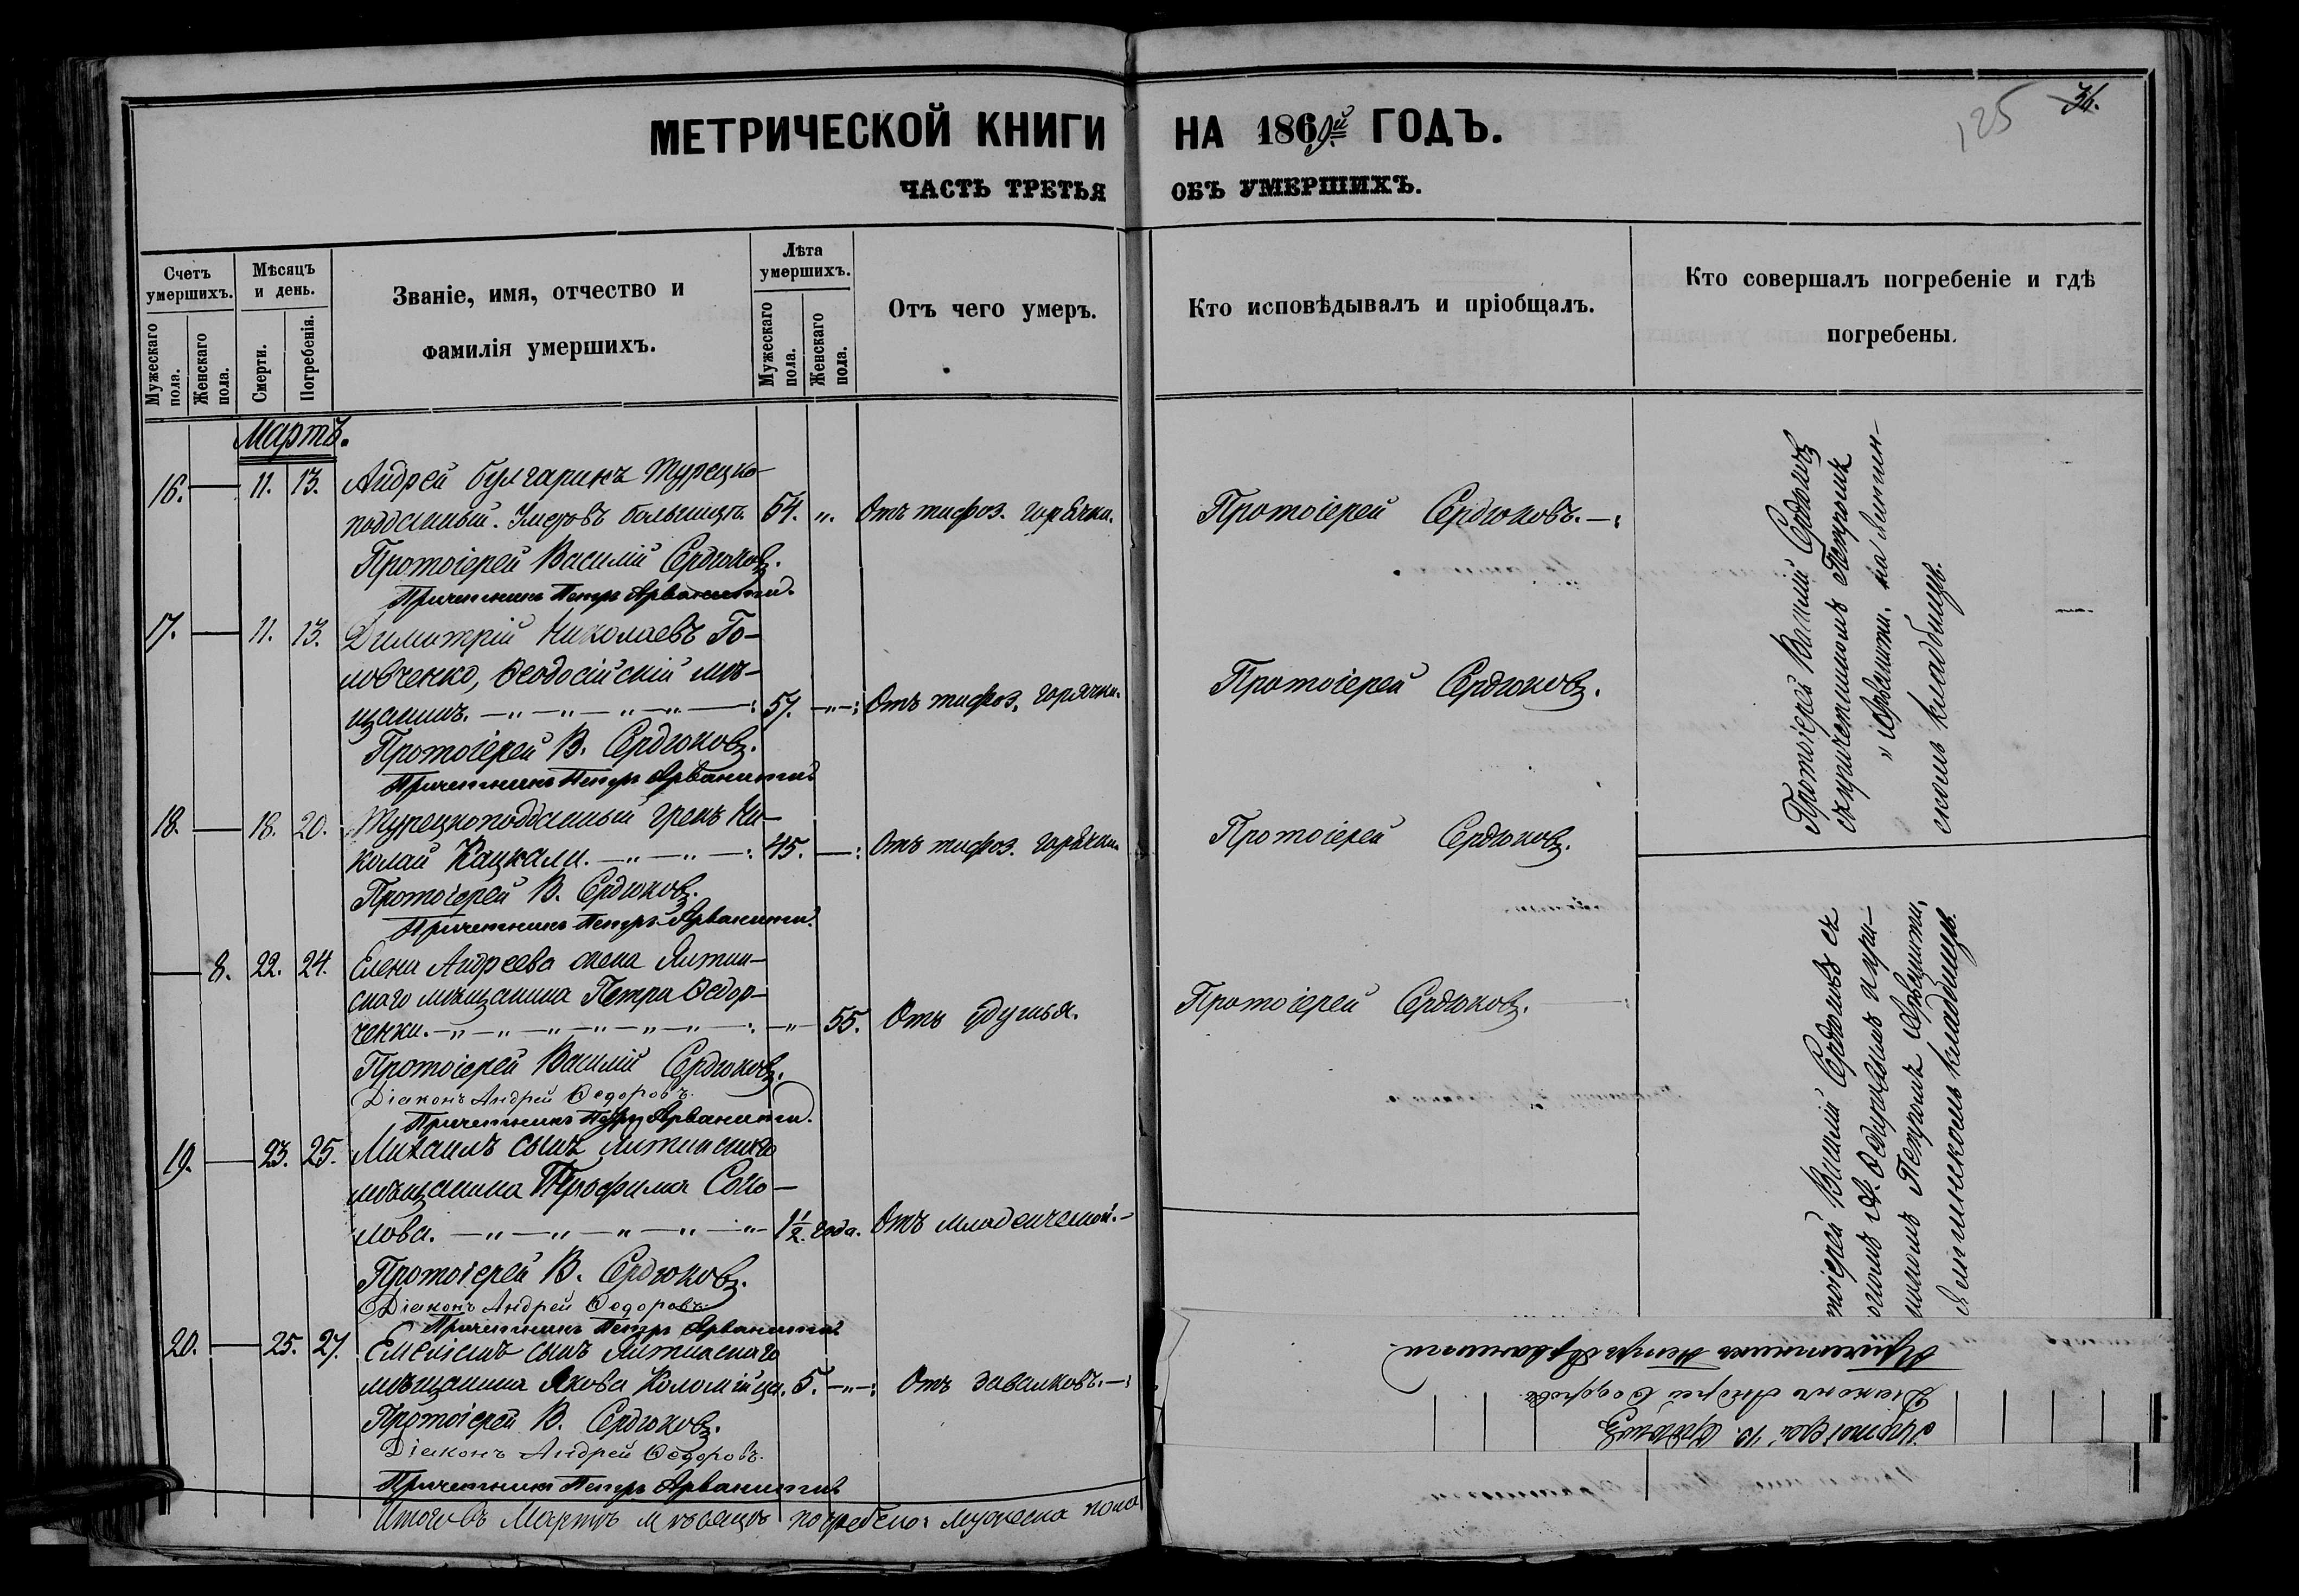 МЕТРИЧЕСКОЙ КНИГИ НА 1869й ГОДЪ.
ЧАСТЬ ТРЕТЬЯ ОБЪ УМЕРШИХЪ.
125 36.
Счетъ умершихъ.
Мужескаго пола.
Женскаго пола.
Мѣсяцъ и день.
Смерти.
Погребенія.
Званіе, имя, отчество и
фамилія умершихъ.
Лѣта умершихъ.
Мужескаго пола.
Женскаго пола.
Отъ чего умеръ.
Кто исповѣдывалъ и пріобщалъ.
Кто совершалъ погребеніе и гдѣ
погребены.
Мартъ.
16. — 11. 13. Андрей Булгаринъ Турецко-
подданный. Умеръ въ больницѣ. 54. „ Отъ тифоз. горячки. Протоіерей Сердюковъ.
Протоіерей Василій Сердюковъ.
Причетникъ Петръ Арванити.
17. — 11. 13. Димитрій Николаевъ Го-
ловченко, Ѳеодосійскій мѣ-
щанинъ. — „ — „ — „ — „ — : 57. — „ — : Отъ тифоз. горячки. Протоіерей Сердюковъ.
Протоіерей В. Сердюковъ.
Причетникъ Петръ Арванити
18. — 18. 20. Турецкоподданный грекъ Ни-
колай Кацкали. — „ — „ — : 45. — : Отъ тифоз. горячки Протоіерей Сердюковъ.
Протоіерей В. Сердюковъ.
Причетникъ Петръ Арванити.
Протоіерей Василій Сердюковъ
съ причетникомъ Петромъ
„ Арванити. на Ялтин-
скомъ кладбищѣ.
— 8. 22. 24. Елена Андреева жена Ялтин-
скаго мѣщанина Петра Ѳедор-
ченки. — „ — „ — „ — „ — „ — „ — : — „ — 55. Отъ удушья. Протоіерей Сердюковъ.
Протоіерей Василій Сердюковъ.
Діаконъ Андрей Ѳедоровъ.
Причетникъ Петръ Арванити.
19. — 23. 25. Михаилъ сынъ Ялтинскаго
мѣщанина Трофима Соко-
лова. — „ — „ — „ — „ — „ — 1½ года. Отъ младенческой. —
Протоіерей В. Сердюковъ.
Діаконъ Андрей Ѳедоровъ.
Причетникъ Петръ Арванити
20. — 25. 27. Емеліанъ сынъ Ялтинскаго
мѣщанина Якова Коломійца. 5. — „ — : Отъ завалковъ. — :
Протоіерей В. Сердюковъ.
Діаконъ Андрей Ѳедоровъ.
Причетникъ Петръ Арванити
тоіерей Василій Сердюковъ съ
кономъ А. Ѳедоровымъ и при-
никомъ Петромъ Арванити,
Ялтинскомъ кладбищѣ.
Протоіерей В. Сердюковъ
Діаконъ Андрей Ѳедоровъ
Причетникъ Петръ Арванити
Итого въ Мартѣ мѣсяцѣ погребено: мужеска пола